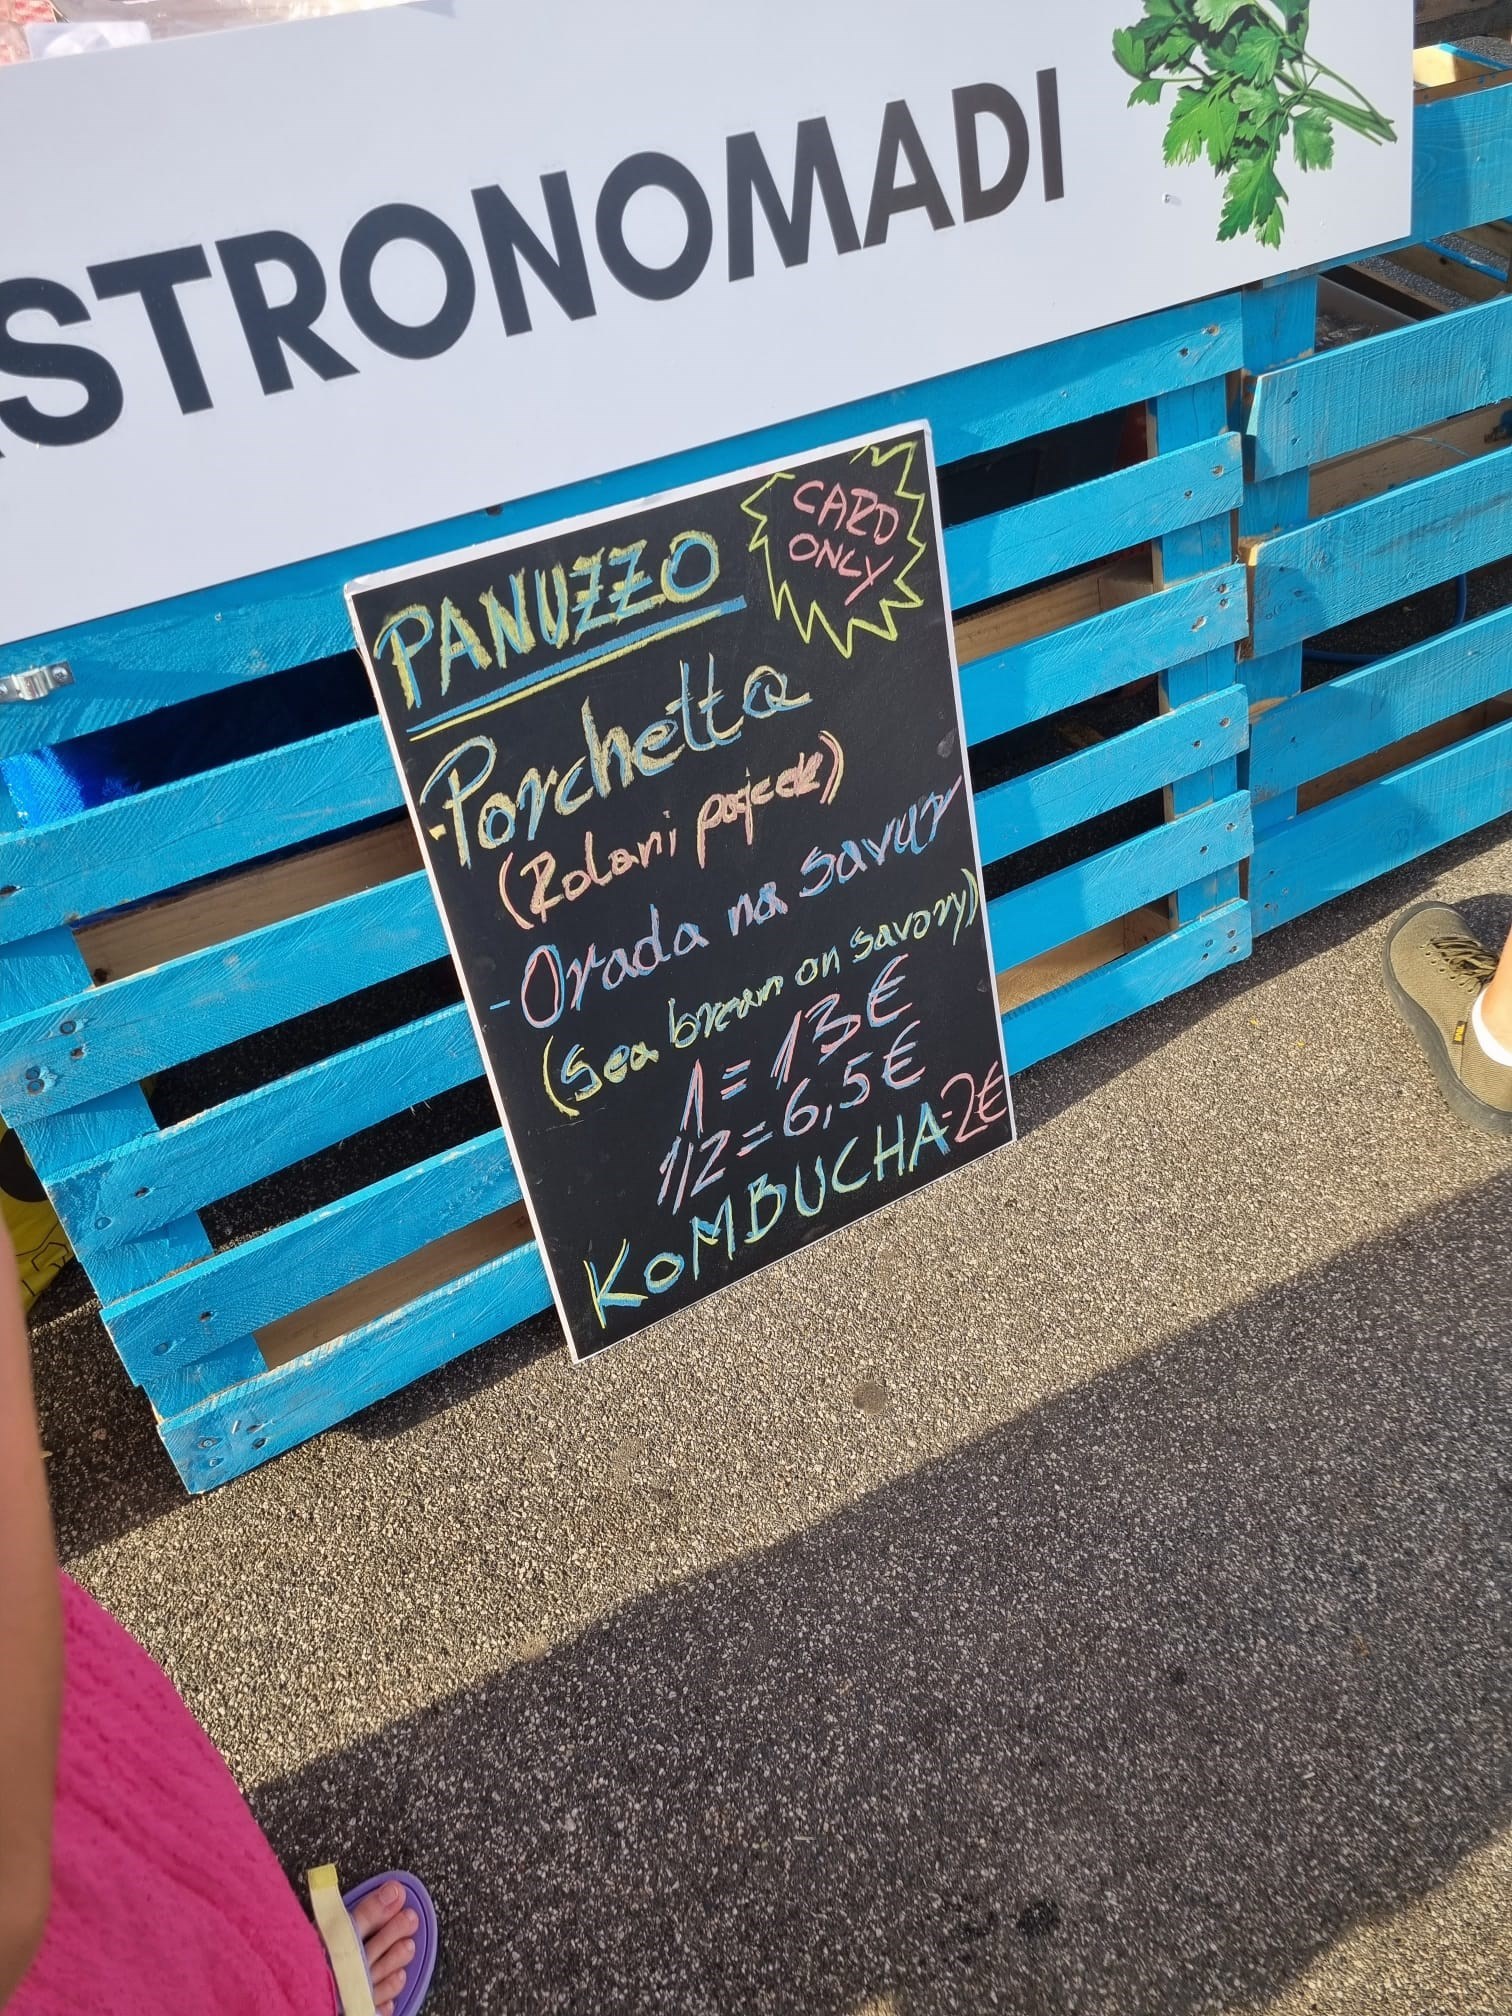 ASTRONOMADI
CARD
ONLY
PANUZZO
-Porchetta
(Rolani pojeck)
-Orada na savur
(Sea bream on savory)
1 = 13€
1/2 = 6,5€
KOMBUCHA-2€